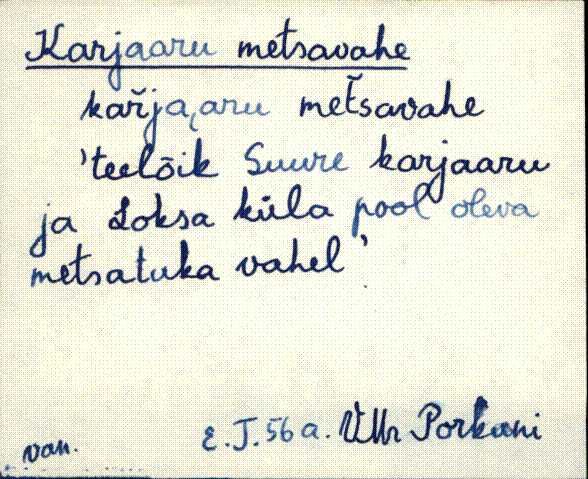 Karjaaru metsavahe
kaŕja,aru met̆savahe
'teelõik Suure karjaaru
ja Loksa küla pool oleva
metsatuka vahel'
van. E.J. 56 a. VMr Porkuni